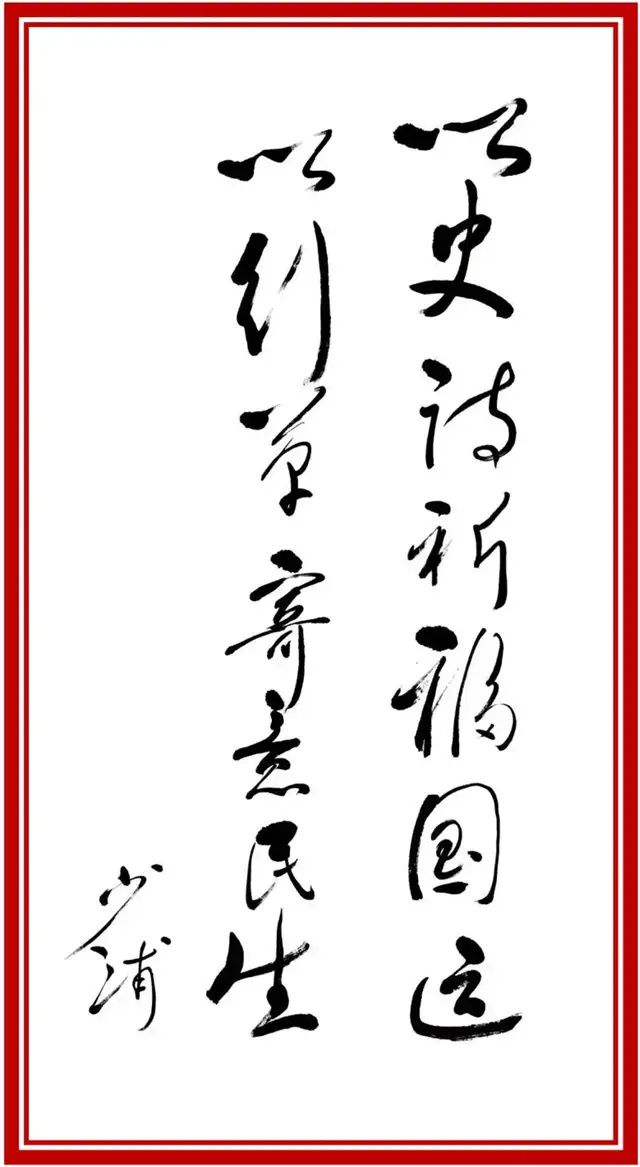 以史诗祈福国运
以草寄意民生
少浦